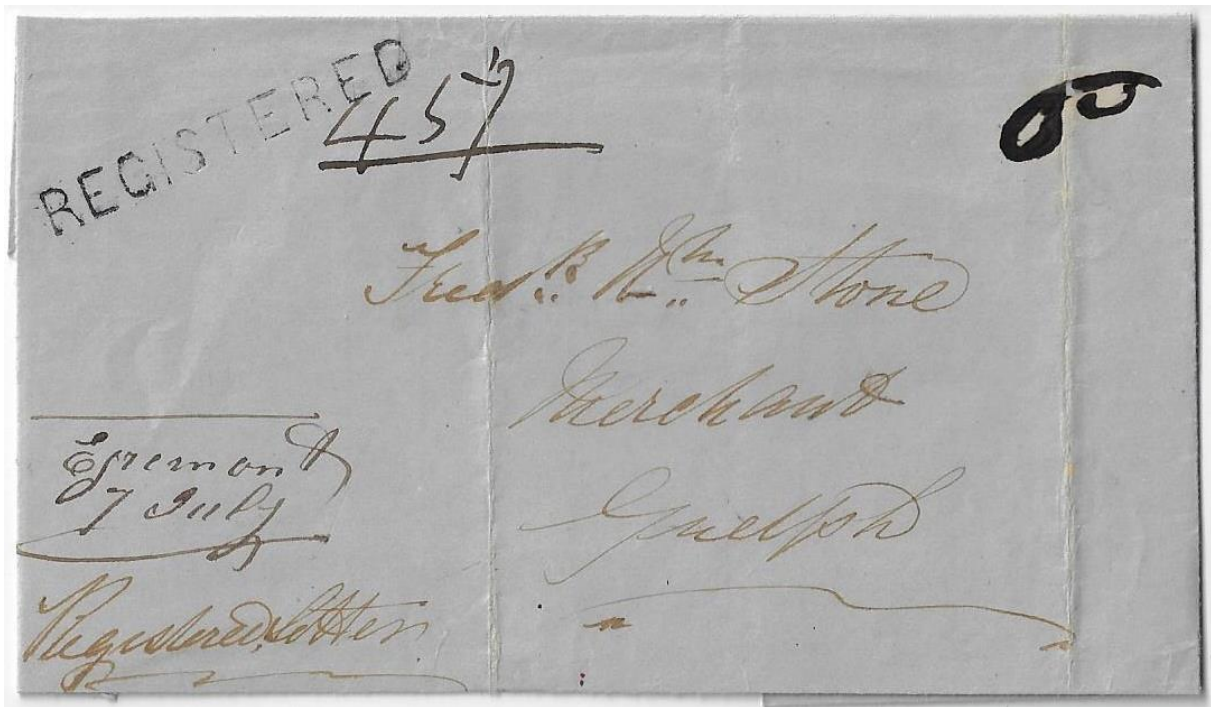 REGISTERED
457
Fredk. Wm. Stone
Merchant
Guelph
Egremont
7 July
Registered Letter